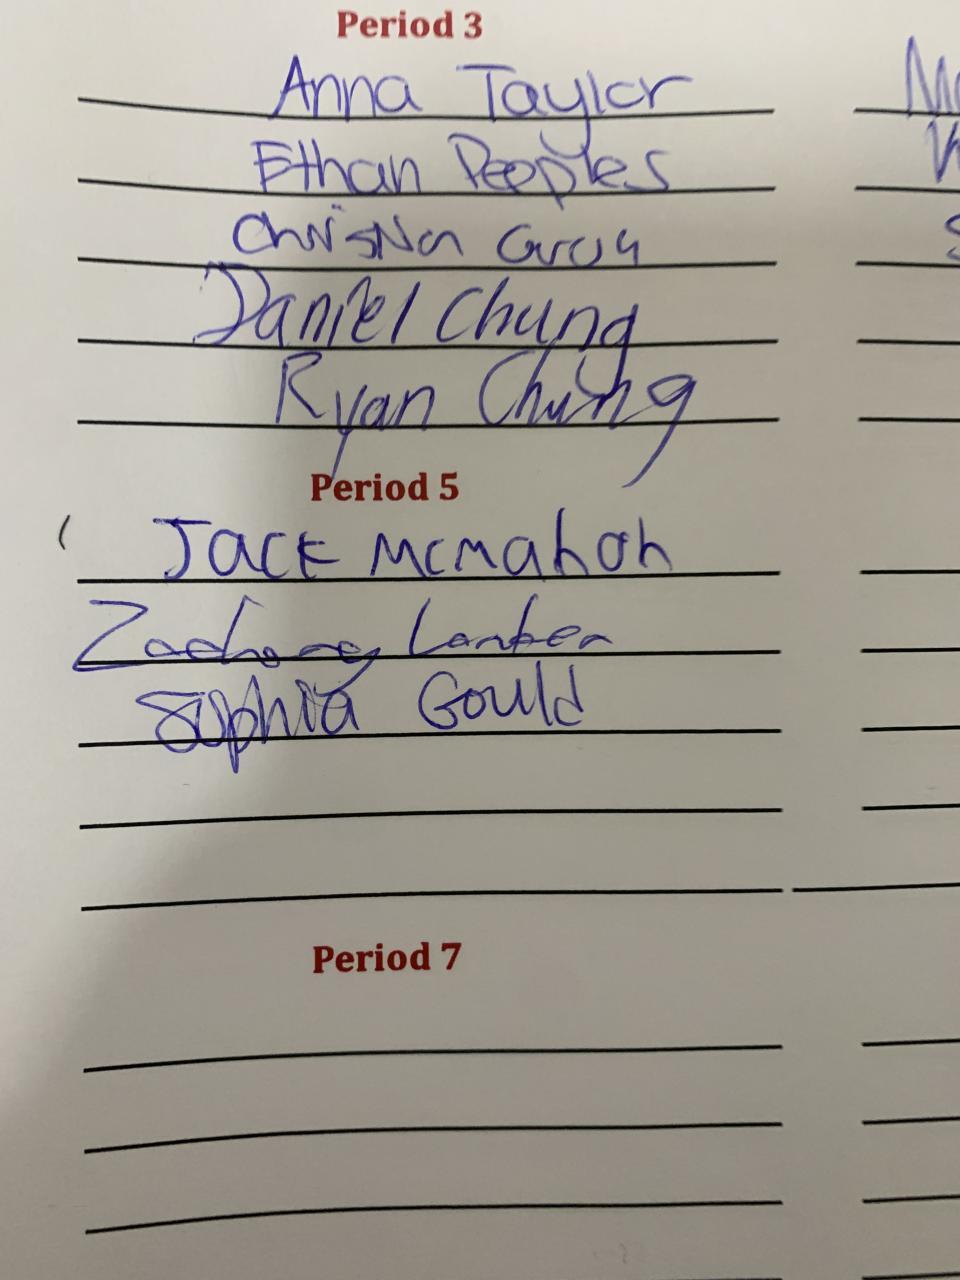 Period 3
Anna Taylor
Ethan Peeples
Christian Gray
Daniel Chung
Ryan Chung
Period 5
Jack McMahon
Zachary
Sophia Gould
Period 7